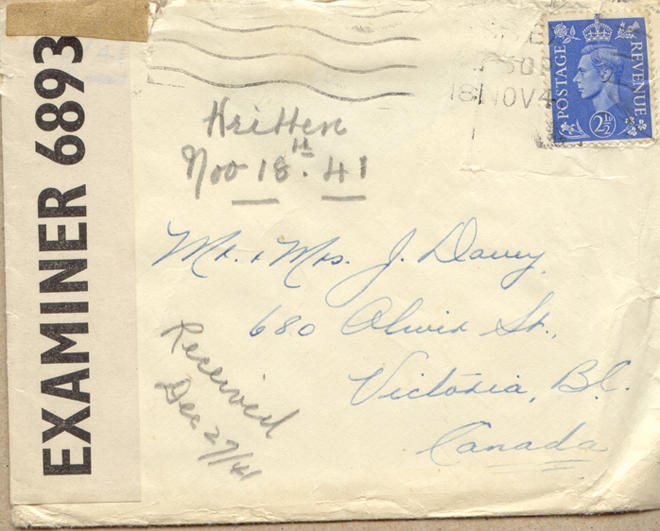 EXAMINER 6893
18 NOV 4
POSTAGE
REVENUE
2½D
Written
Nov 18th. 41
Mr. & Mrs. J. Davey,
680 Oliver St.,
Victoria, B.C.
Canada
Received
Dec 27/41